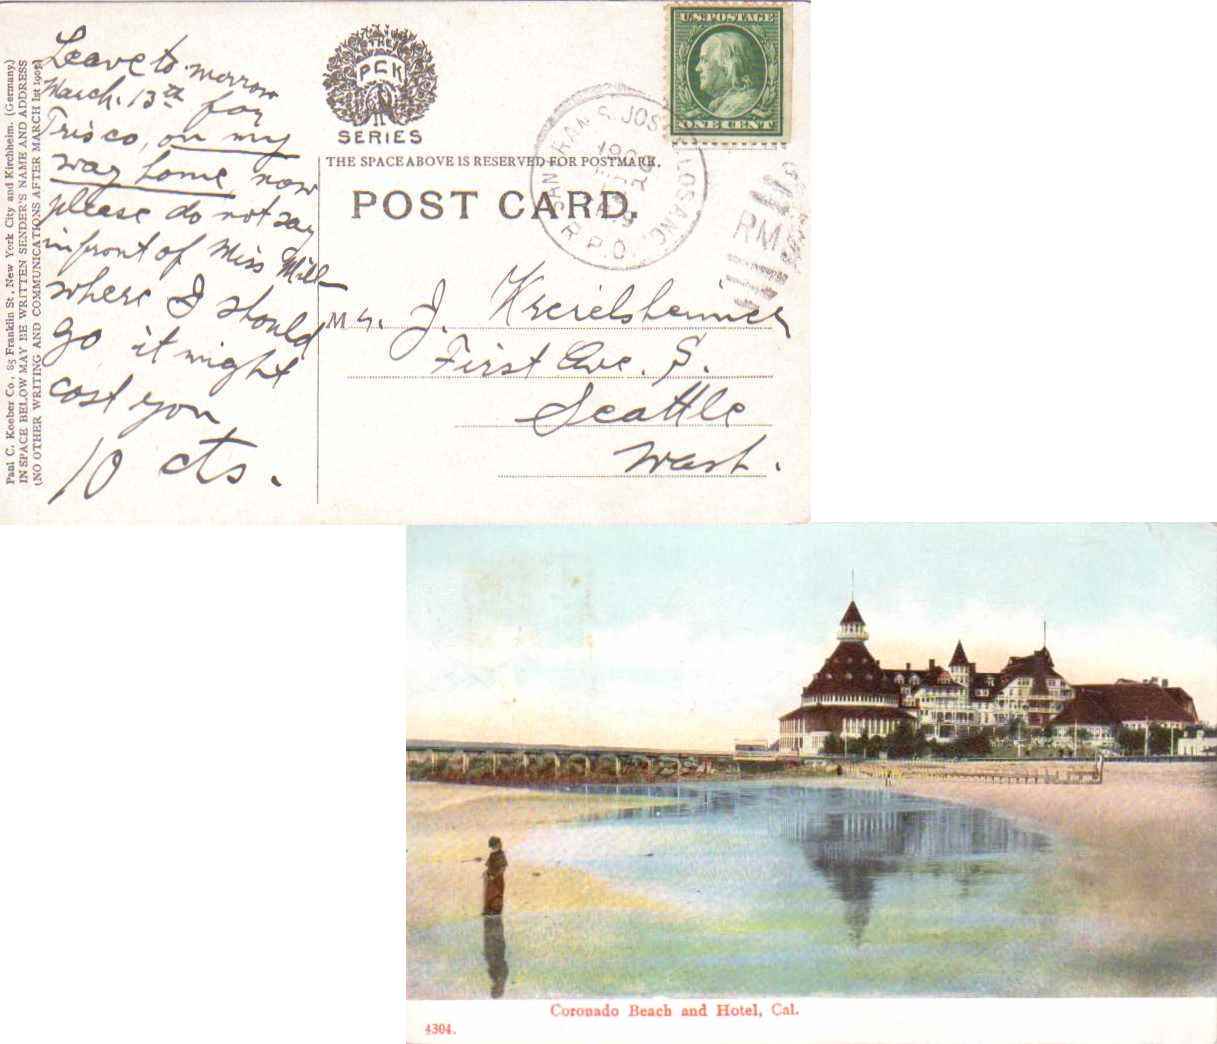 Paul C. Koeber Co., 85 Franklin St., New York City and Kirchheim. (Germany.)
IN SPACE BELOW MAY BE WRITTEN SENDER'S NAME AND ADDRESS
(NO OTHER WRITING AND COMMUNICATIONS AFTER MARCH 1st 1907)
Leave to-morrow
March. 13th for
Frisco, on my
way home, now
please do not say
infront of Miss Mill
where I should
go it might
cost you
10 cts.
THE
PCK
SERIES
THE SPACE ABOVE IS RESERVED FOR POSTMARK.
POST CARD.
U.S. POSTAGE
ONE CENT
SAN FRAN S. JOSE & LOS ANG.
R.P.O.
RM
Mr. J. Kreielsheimer
First Ave. S.
Seattle
Wash.
Coronado Beach and Hotel, Cal.
4304.